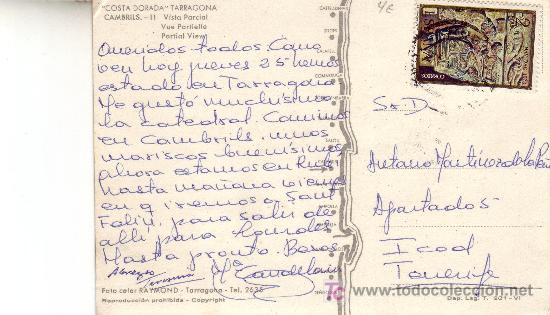 "COSTA DORADA" TARRAGONA
CAMBRILS. - 11 Vista Parcial
Vue Partielle
Partial View
Queridos todos Como
ven hoy jueves 25 hemos
estado en Tarragona
Me gustó muchísimo
la catedral. Comimos
en Cambrils, unos
mariscos buenísimos
ahora estamos en
hasta mañana viernes
en q iremos a Sant
Feliu, para salir de
allí para Lourdes
Hasta pronto. Besos
Abrazos
Mª Candelaria
Foto color RAYMOND - Tarragona - Tel. 2635
Reproducción prohibida - Copyright
CORREOS
Sr. D.
Antonio Martínez de la Peña
Apartado 5
Icod
Tenerife
Dep. Leg. T. 501 - VI
todocoleccion
www.todocoleccion.net